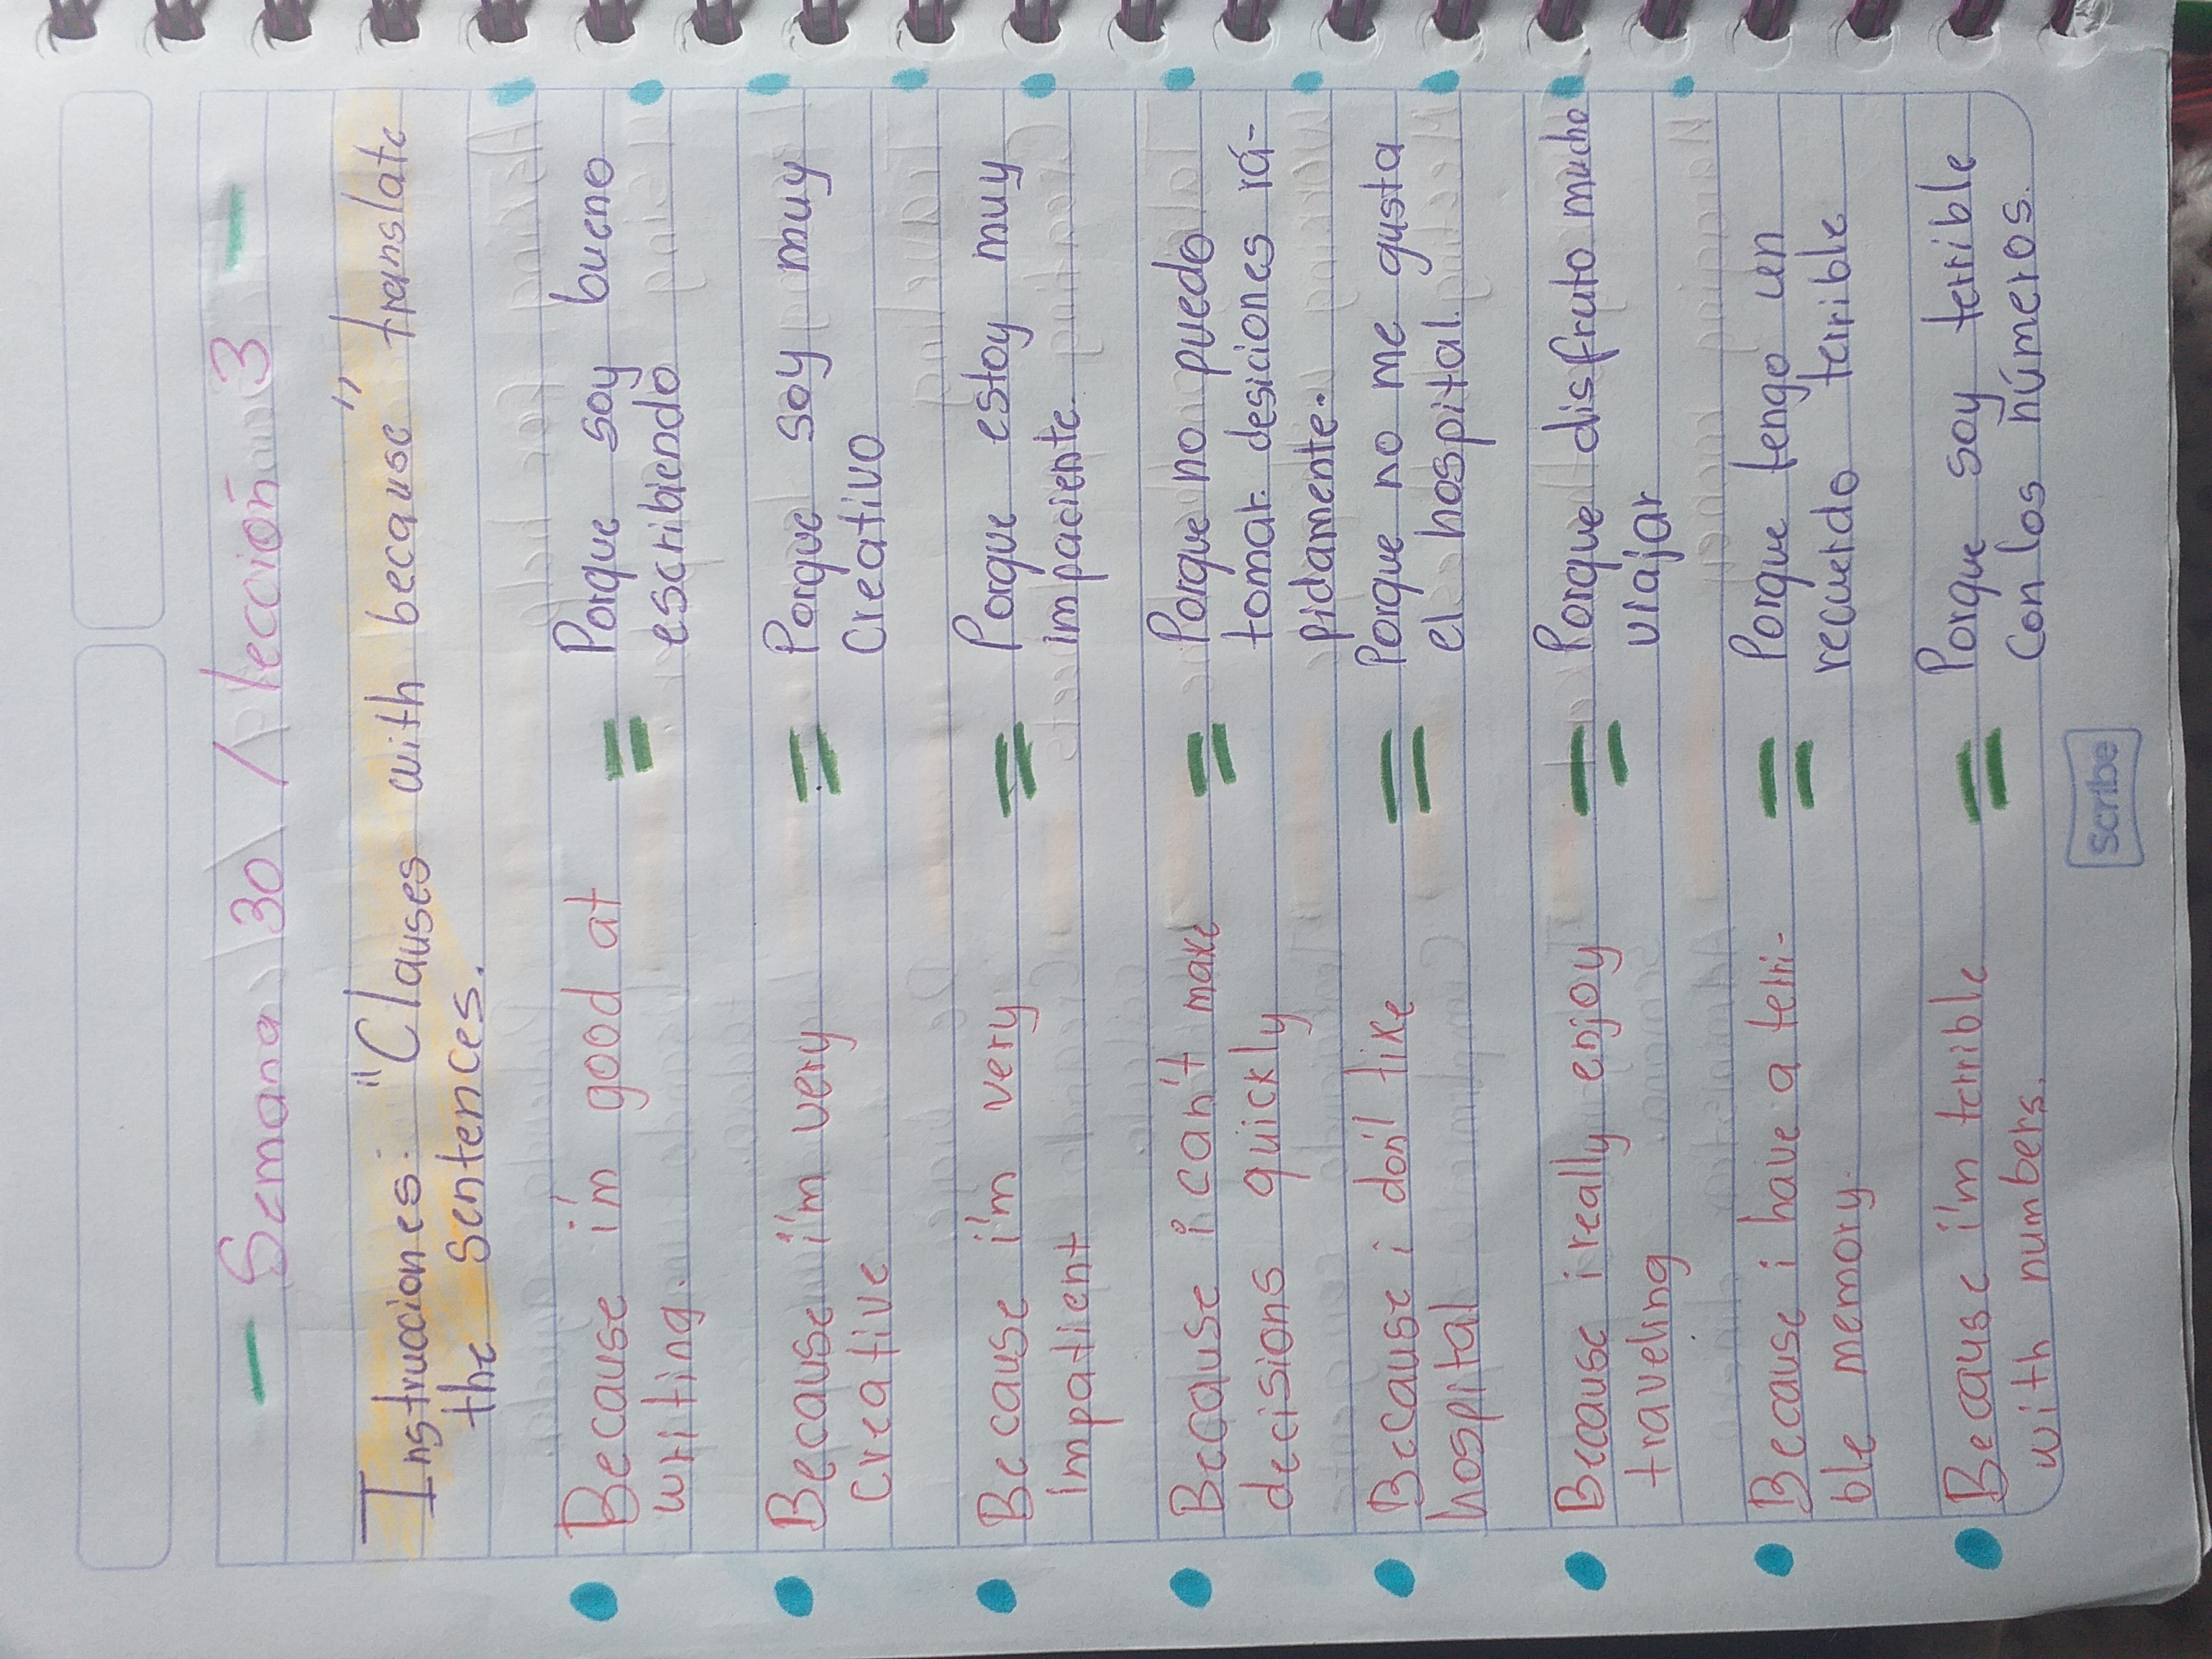 Semana 30 / lección 3
Instrucciones: "Clauses with because" translate
the sentences.
Because i'm good at
writing.
= Porque soy bueno
escribiendo
Because i'm very
creative
= Porque soy muy
Creativo
Because i'm very
impatient
= Porque estoy muy
impaciente
Because i can't make
decisions quickly
= Porque no puedo
tomar desiciones rá-
pidamente.
Because i don't like
hospital
= Porque no me gusta
el hospital.
Because i really enjoy
traveling
= Porque disfruto mucho
viajar
Because i have a terri-
ble memory.
= Porque tengo un
recuerdo terrible
Because i'm terrible
with numbers.
= Porque soy terrible
Con los números.
Scribe